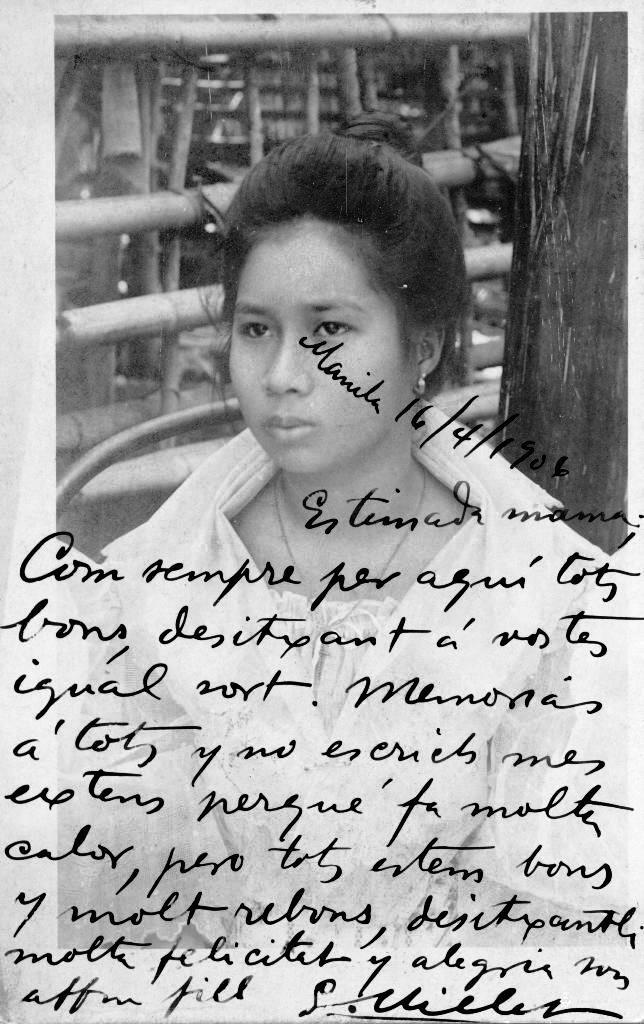 Manila 16/4/1906
Estimada mamá:
Com sempre per aquí tots
bons, desitxant á vostes
iguál sort. Memorias
á tots y no escrich mes
extens perqué fa molta
calor, pero tots estem bons
y mólt rebons, desitxantli
molta felicitat y alegria son
affm fill S. Millet